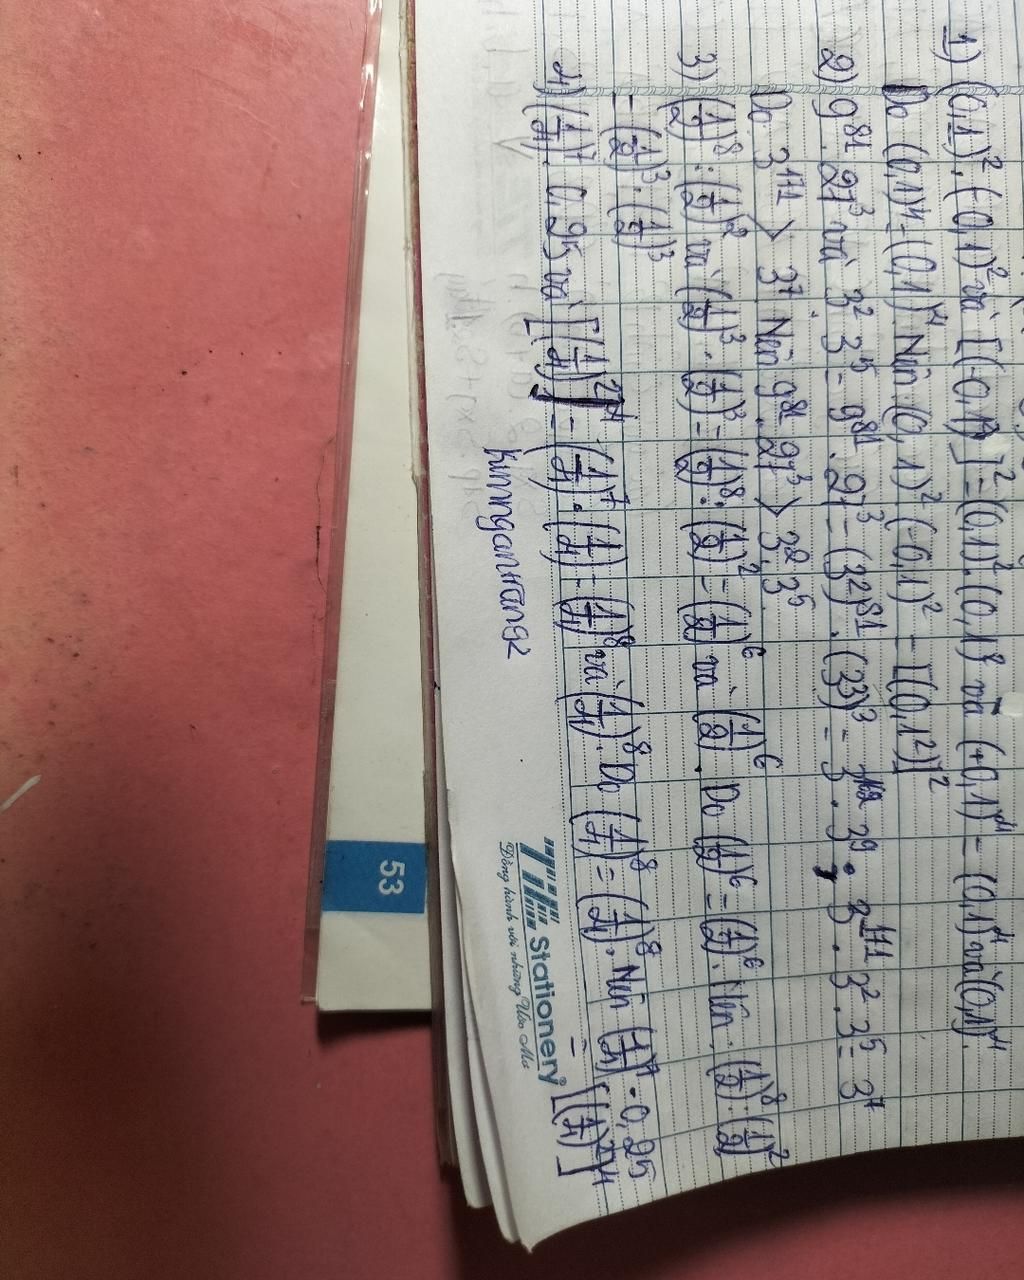 1) (0,1)². (-0,1)² và [(-0,1)²]² = (0,1)². (0,1)² và (+0,1)⁴ = (0,1)⁴ và (0,1)⁴.
Do (0,1)⁴ = (0,1)⁴ Nên (0,1)² (-0,1)² = [(0,1²)]²
2) 9⁸¹. 27³ và 3². 3⁵ = 9⁸¹. 27³ = (3²)⁸¹. (3³)³ = 3¹⁶². 3⁹ = 3¹⁷¹. 3². 3⁵ = 3⁷
Do 3¹⁷¹ > 3⁷ Nên 9⁸¹. 27³ > 3². 3⁵
3) (1/2)⁸ : (1/2)² và (1/2)³. (1/2)³ = (1/2)⁸ : (1/2)² = (1/2)⁶ và (1/2)⁶. Do (1/2)⁶ = (1/2)⁶. Nên: (1/2)⁸ : (1/2)²
= (1/2)³. (1/2)³
4) (1/4)⁷. 0,25 và [(1/4)²]⁴ = (1/4)⁷. (1/4) = (1/4)⁸ và (1/4)⁸. Do (1/4)⁸ = (1/4)⁸. Nên (1/4)⁷. 0,25
= [(1/4)²]⁴
kimngantrang2
Stationery
Đồng hành với những Ước Mơ
53